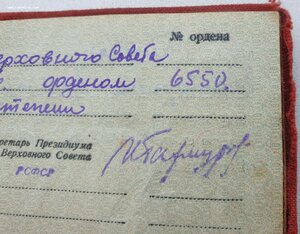 № ордена
ерховного Совета
орденом 6550.
степени
кретарь Президиума
Верховного Совета
РСФСР